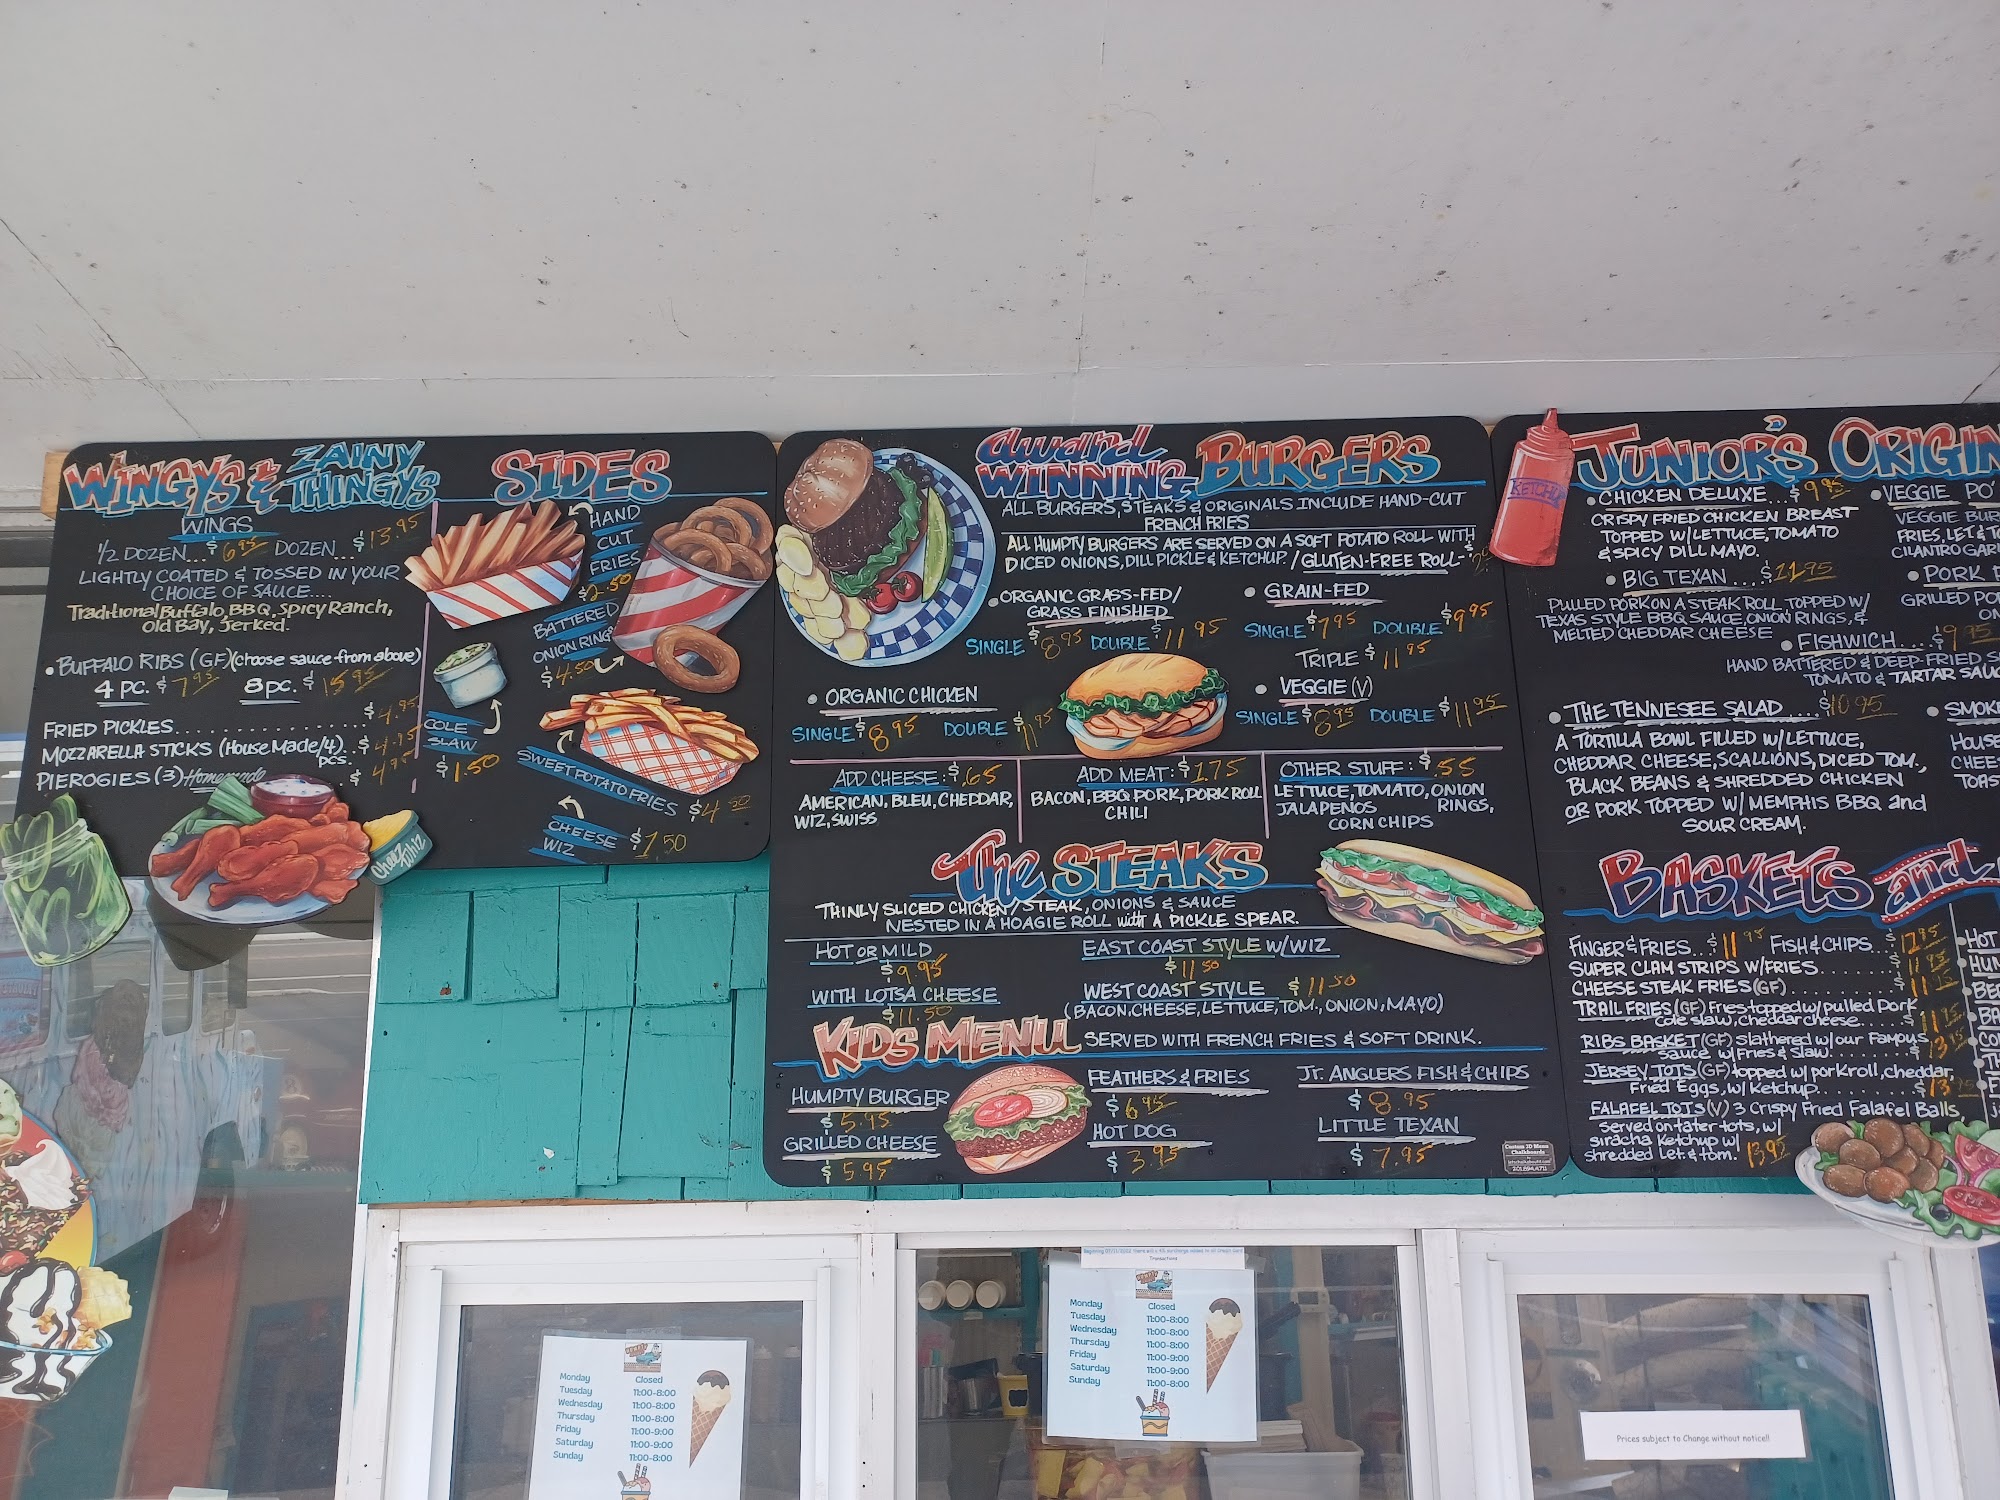 WINGY'S & ZAINY THINGYS
WINGS
1/2 DOZEN... $6.95 DOZEN... $13.95
LIGHTLY COATED & TOSSED IN YOUR
CHOICE OF SAUCE....
Traditional Buffalo, BBQ, Spicy Ranch,
Old Bay, Jerked.
• BUFFALO RIBS (GF)(choose sauce from above)
4 PC. $7.95 8 PC. $15.95
FRIED PICKLES............ $4.95
MOZZARELLA STICKS (House Made/4) pcs... $4.95
PIEROGIES (3) Homemade $
SIDES
HAND
CUT
FRIES
$2.50
BATTERED
ONION RINGS
$4.50
COLE
SLAW
$1.50
SWEET POTATO FRIES $4.50
CHEESE
WIZ $1.50
Cheez Whiz
award
WINNING BURGERS
ALL BURGERS, STEAKS & ORIGINALS INCLUDE HAND-CUT
FRENCH FRIES
ALL HUMPTY BURGERS ARE SERVED ON A SOFT POTATO ROLL WITH
DICED ONIONS, DILL PICKLE & KETCHUP. / GLUTEN-FREE ROLL-
• ORGANIC GRASS-FED/
GRASS FINISHED
SINGLE $8.95 DOUBLE $11.95
• GRAIN-FED
SINGLE $7.95 DOUBLE $9.95
TRIPLE $11.95
• ORGANIC CHICKEN
SINGLE $8.95 DOUBLE $11.95
• VEGGIE (V)
SINGLE $8.95 DOUBLE $11.95
ADD CHEESE: $.65
AMERICAN, BLEU, CHEDDAR,
WIZ, SWISS
ADD MEAT: $1.75
BACON, BBQ PORK, PORK ROLL
CHILI
OTHER STUFF: $.55
LETTUCE, TOMATO, ONION
JALAPENOS RINGS,
CORN CHIPS
The STEAKS
THINLY SLICED CHICKEN/STEAK, ONIONS & SAUCE
NESTED IN A HOAGIE ROLL with A PICKLE SPEAR.
HOT OR MILD
$9.95
WITH LOTSA CHEESE
$11.50
EAST COAST STYLE W/WIZ
$11.50
WEST COAST STYLE $11.50
(BACON, CHEESE, LETTUCE, TOM., ONION, MAYO)
KIDS MENU SERVED WITH FRENCH FRIES & SOFT DRINK.
HUMPTY BURGER
$5.95
GRILLED CHEESE
$5.95
FEATHERS & FRIES
$6.95
HOT DOG
$3.95
JR. ANGLERS FISH & CHIPS
$8.95
LITTLE TEXAN
$7.95
Custom 3D Menu
Chalkboards
KETCHUP
JUNIOR'S ORIGIN
• CHICKEN DELUXE... $9.95
CRISPY FRIED CHICKEN BREAST
TOPPED W/LETTUCE, TOMATO
& SPICY DILL MAYO.
• BIG TEXAN ... $11.95
PULLED PORK ON A STEAK ROLL, TOPPED W/
TEXAS STYLE BBQ SAUCE, ONION RINGS, &
MELTED CHEDDAR CHEESE
• FISHWICH.... $9.95
HAND BATTERED & DEEP-FRIED, S
TOMATO & TARTAR SAUC
• THE TENNESEE SALAD..... $10.95
A TORTILLA BOWL FILLED W/LETTUCE,
CHEDDAR CHEESE, SCALLIONS, DICED TOM.,
BLACK BEANS & SHREDDED CHICKEN
OR PORK TOPPED W/ MEMPHIS BBQ and
SOUR CREAM.
• VEGGIE PO'
VEGGIE BUR
FRIES, LET & TO
CILANTRO GAR
• PORK
GRILLED PO
ON
• SMOKE
HOUSE
CHEES
TOAS
BASKETS and
FINGER & FRIES... $11.95 FISH & CHIPS... $12.95
SUPER CLAM STRIPS W/FRIES....... $11.95
CHEESE STEAK FRIES (GF)......... $
TRAIL FRIES (GF) Fries topped w/ pulled pork,
cole slaw, cheddar cheese..... $11.95
RIBS BASKET (GF) slathered w/our Famous
sauce w/Fries & Slaw........ $13.95
JERSEY TOTS (GF) topped w/ porkroll, cheddar,
Fried Eggs, w/ Ketchup....... $13.95
FALAFEL TOTS (V) 3 Crispy Fried Falafel Balls,
served on tater tots, w/
siracha Ketchup w/
shredded Let. & tom. 13.95
HOT
HUM
BE
BA
CO
TH
F
Monday Closed
Tuesday 11:00-8:00
Wednesday 11:00-8:00
Thursday 11:00-8:00
Friday 11:00-9:00
Saturday 11:00-9:00
Sunday 11:00-8:00
Transactions
Monday Closed
Tuesday 11:00-8:00
Wednesday 11:00-8:00
Thursday 11:00-8:00
Friday 11:00-9:00
Saturday 11:00-9:00
Sunday 11:00-8:00
Prices subject to Change without notice!!